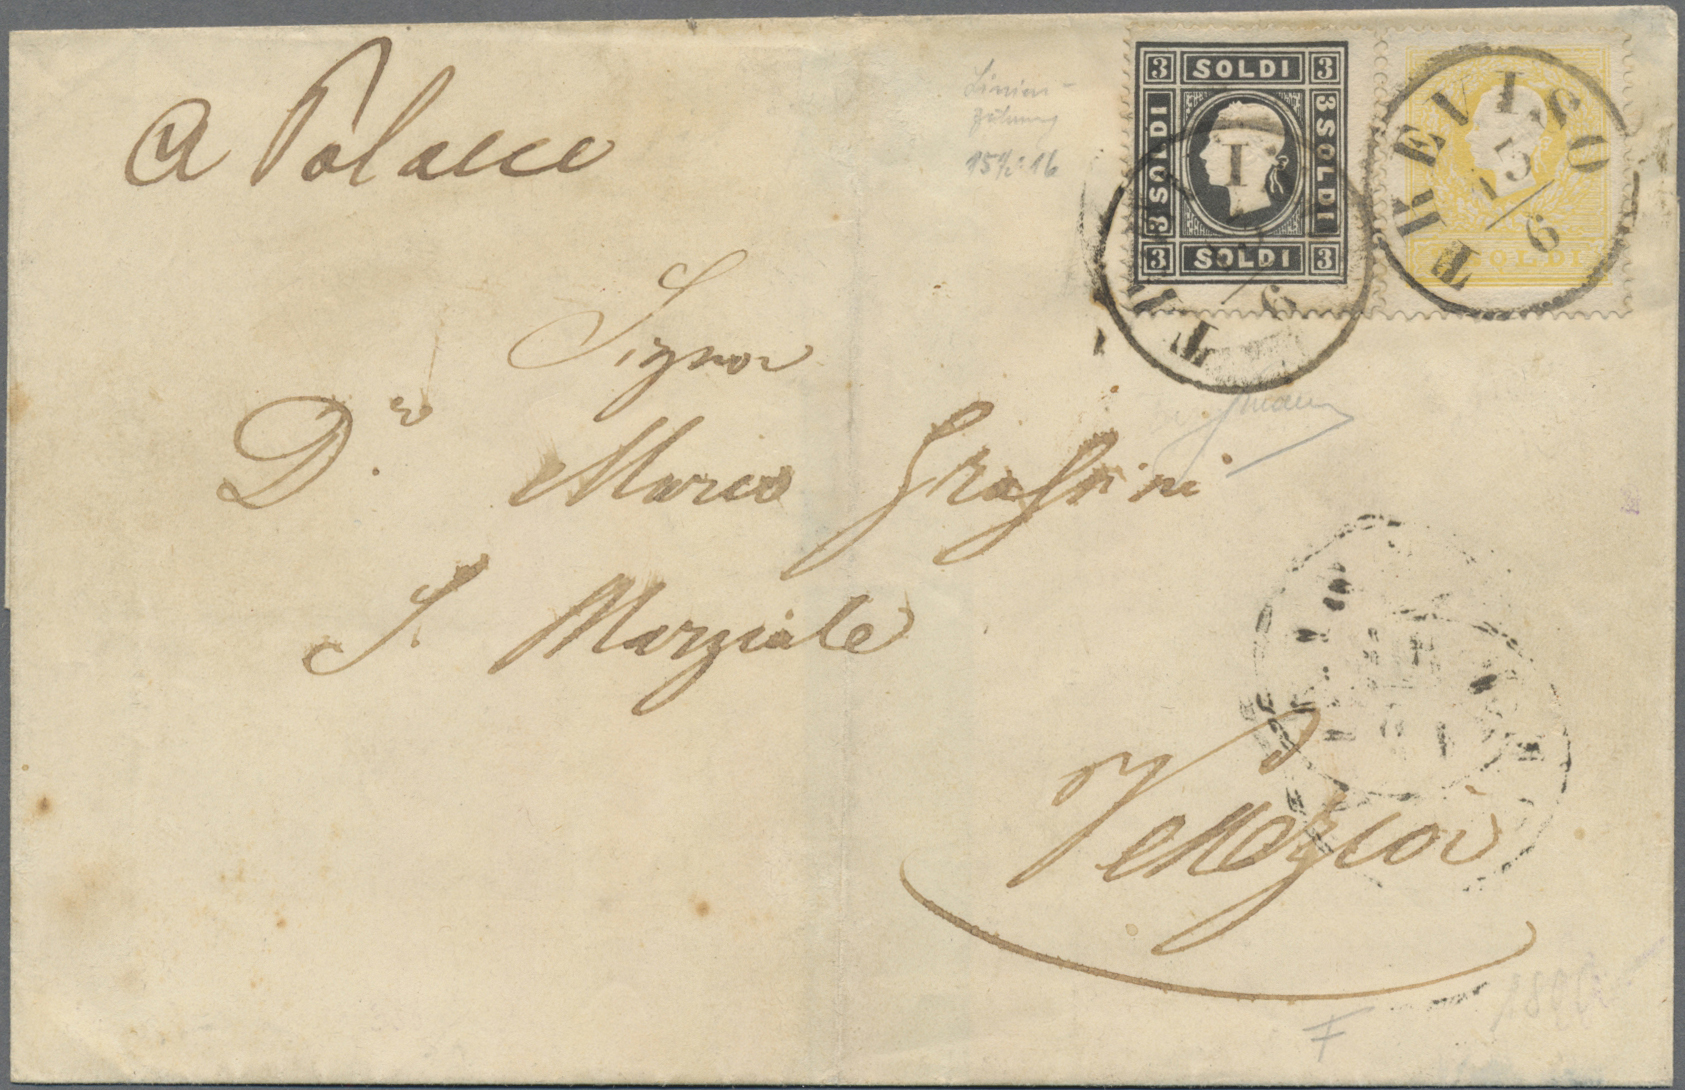 a Polacco
Linien-
zähnung
15½:16
3 SOLDI 3
3 SOLDI
3 SOLDI
3 SOLDI 3
SOLDI
TREVISO
15/6
T
I
/6
Signor
D.r Marco Grassini
S. Marziale
Venezia
F